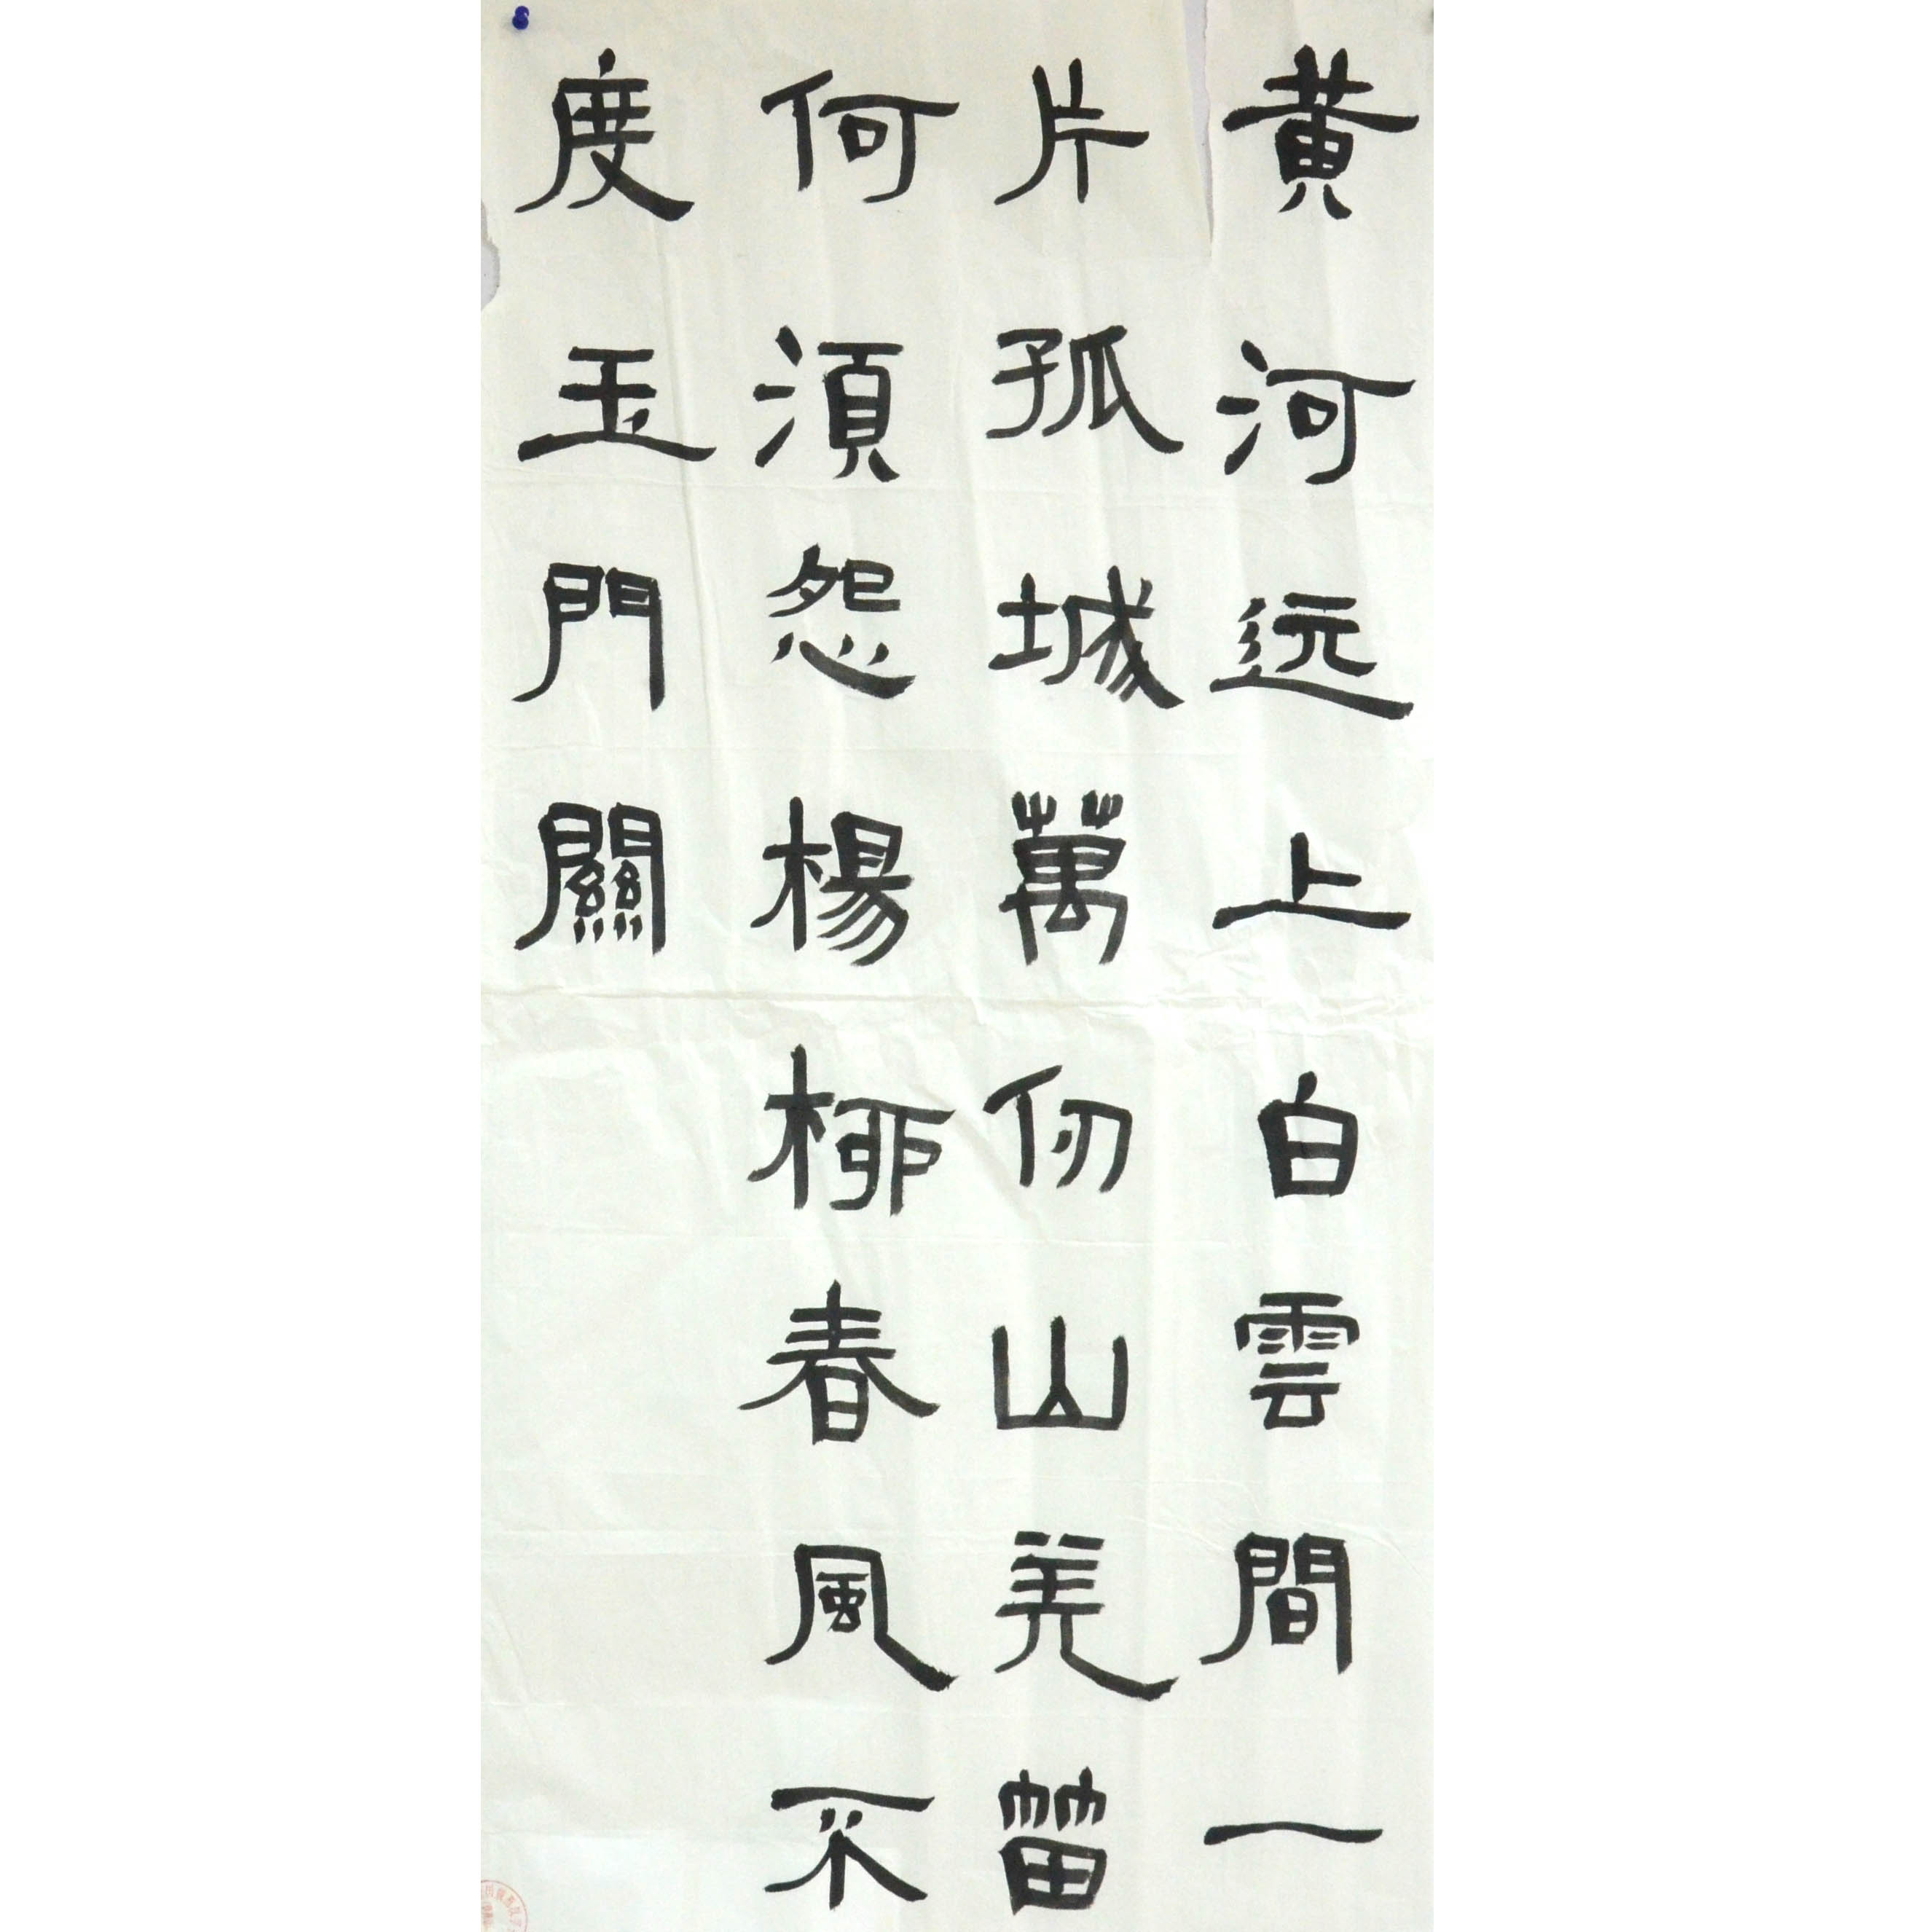 黄河远上白雲間一
片孤城萬仞山羌笛
何須怨楊柳春風不
度玉門關